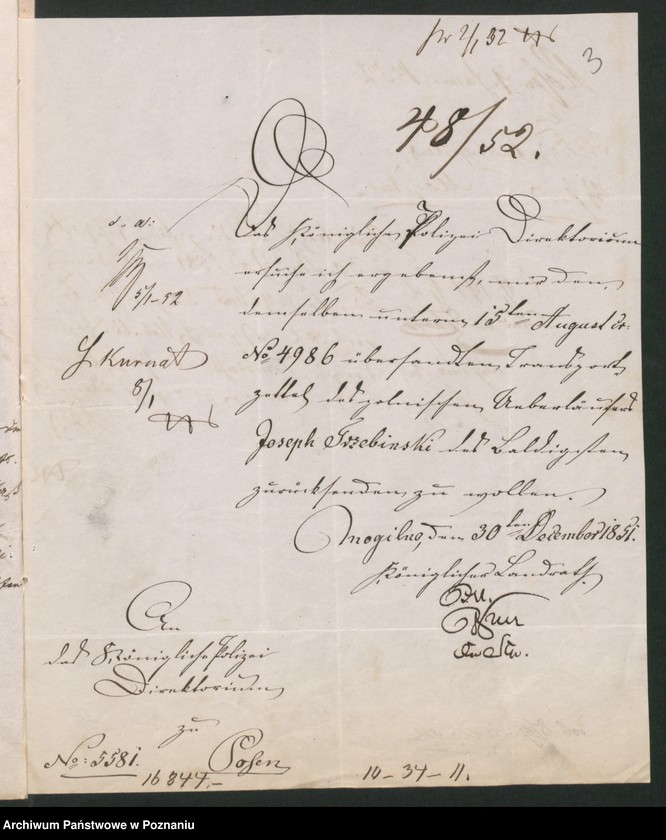 pr 2/1 52
3
48/52.
Das Königliche Polizei Direktorium
ersuche ich ergebenst, mir den
demselben unterm 15ten August cr:
No 4986 übersandten Transport-
zettel des polnischen Ueberläufers
Joseph Trzebinski des Baldigsten
zurücksenden zu wollen.
Mogilno, den 30ten December 1851.
Königlicher Landrath
5/1-52
Kurnat
8/1
An
das Königliche Polizei
Direktorium
zu
Posen
No: 5581.
16 344.-
10-34-11.
Archiwum Państwowe w Poznaniu